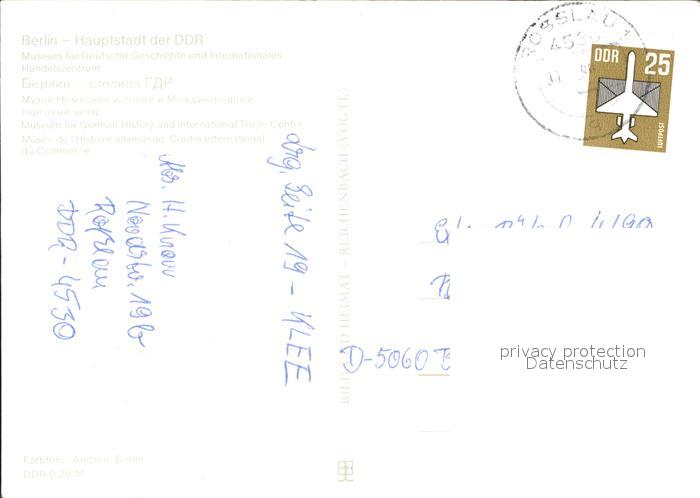 Berlin – Hauptstadt der DDR
Museum für Deutsche Geschichte und Internationales
Handelszentrum
Берлин – столица ГДР
Музей Немецкой истории и Международный
торговый центр
Museum for German History and International Trade Centre
Musée de l'Histoire allemande, Centre international
du Commerce
Abs. H.
Nordstr. 19b
Roßlau
DDR-4530
Seite 19 - KLEE
BILD UND HEIMAT · REICHENBACH (VOGTL)
ROSSLAU 1
DDR 25
LUFTPOST
D-5060 B
privacy protection
Datenschutz
Farbfoto: Andree, Berlin
DDR 0,20 M